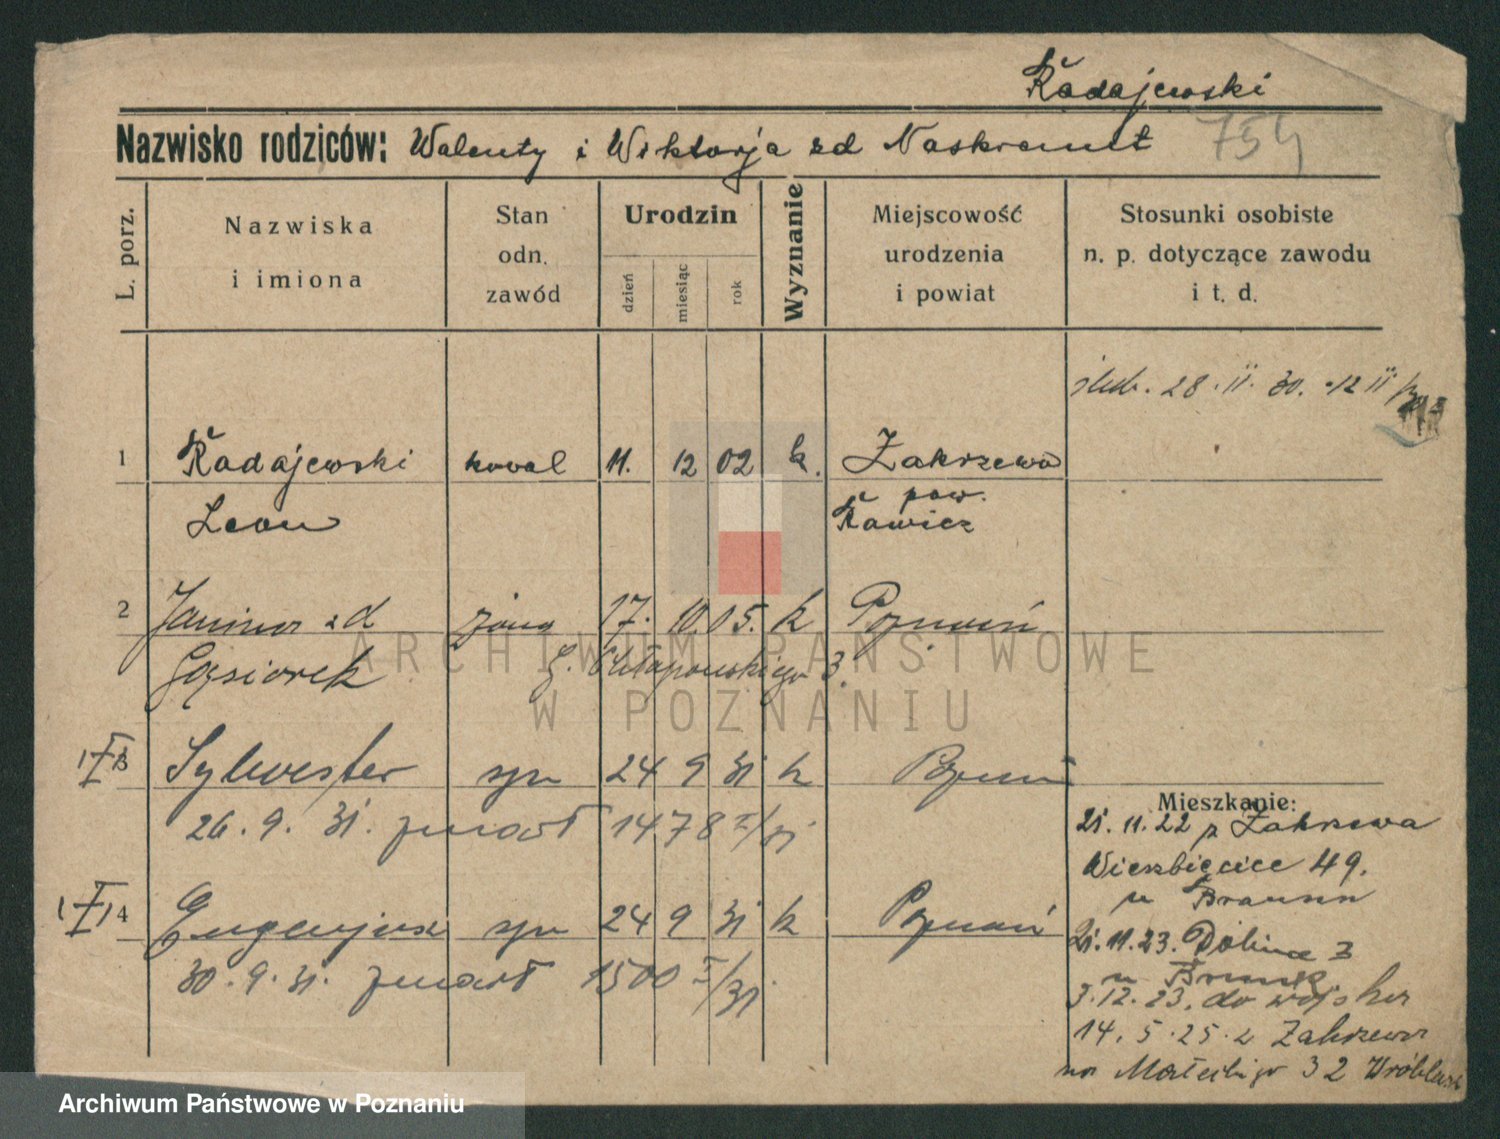 Radajewski
Nazwisko rodziców: Walenty i Wiktorja zd Naskrent 754
L. porz.
Nazwiska
i imiona
Stan
odn.
zawód
Urodzin
dzień
miesiąc
rok
Wyznanie
Miejscowość
urodzenia
i powiat
Stosunki osobiste
n. p. dotyczące zawodu
i t. d.
ślub. 28. II. 30. 12 II
1 Radajewski kowal 11. 12 02 k. Zakrzewo
Leon pow. Rawicz
2 Janina zd żona 17. 10. 05. k Poznań
Gąsiorek G. Chłapowskiego 3.
3 Sylwester syn 24 9 31 k Poznań
26. 9. 31. zmarł 1478 I/31
4 Eugenjusz syn 24 9 31 k Poznań
30. 9. 31. zmarł 1500 I/31
Mieszkanie:
21. 11. 22 z Zakrzewa
Wierzbięcice 49.
u Braunn
21. 11. 23. Dolina 3
u
3. 12. 23. do wojska
14. 5. 25. z Zakrzewa
na Małeckiego 32
ARCHIWUM PAŃSTWOWE
W POZNANIU
Archiwum Państwowe w Poznaniu